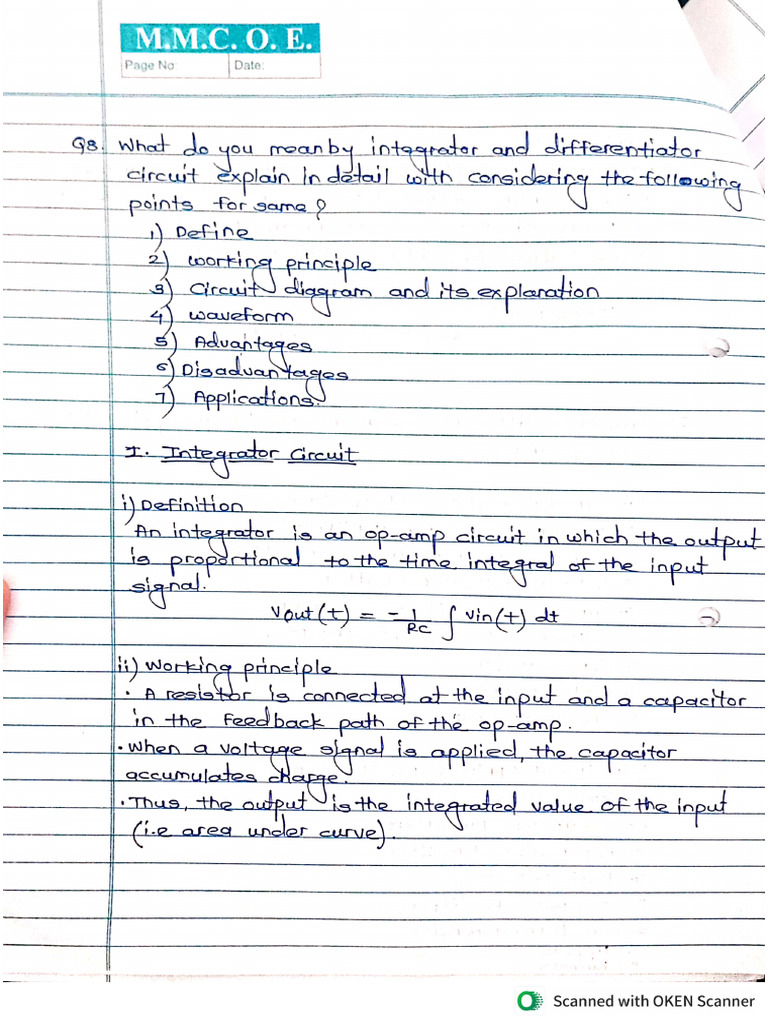 M.M.C. O. E.
Page No: Date:
Q8. What do you mean by integrator and differentiator
circuit explain in detail with considering the following
points for same?
1) Define
2) Working principle
3) Circuit diagram and its explanation
4) waveform
5) Advantages
6) Disadvantages
7) Applications.
I. Integrator Circuit
i) Definition
An integrator is an op-amp circuit in which the output
is proportional to the time integral of the input
signal.
Vout(t) = -1/RC ∫ Vin(t) dt
ii) Working principle
• A resistor is connected at the input and a capacitor
in the feedback path of the op-amp.
• When a voltage signal is applied, the capacitor
accumulates charge.
• Thus, the output is the integrated value of the input
(i.e area under curve).
Scanned with OKEN Scanner